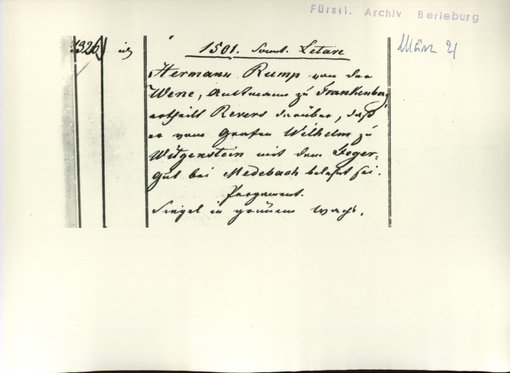 Fürstl. Archiv Berleburg
März 21
1326)
1501. Sonnt. Letare
Hermann Rump von der
Wene, Amtmann zu Frankenberg
ertheilt Revers darüber, daß
er vom Grafen Wilhelm zu
Witgenstein mit dem Hoger-
gut bei Medebach belehnt sei.
Pergament.
Siegel in grünem Wachs.